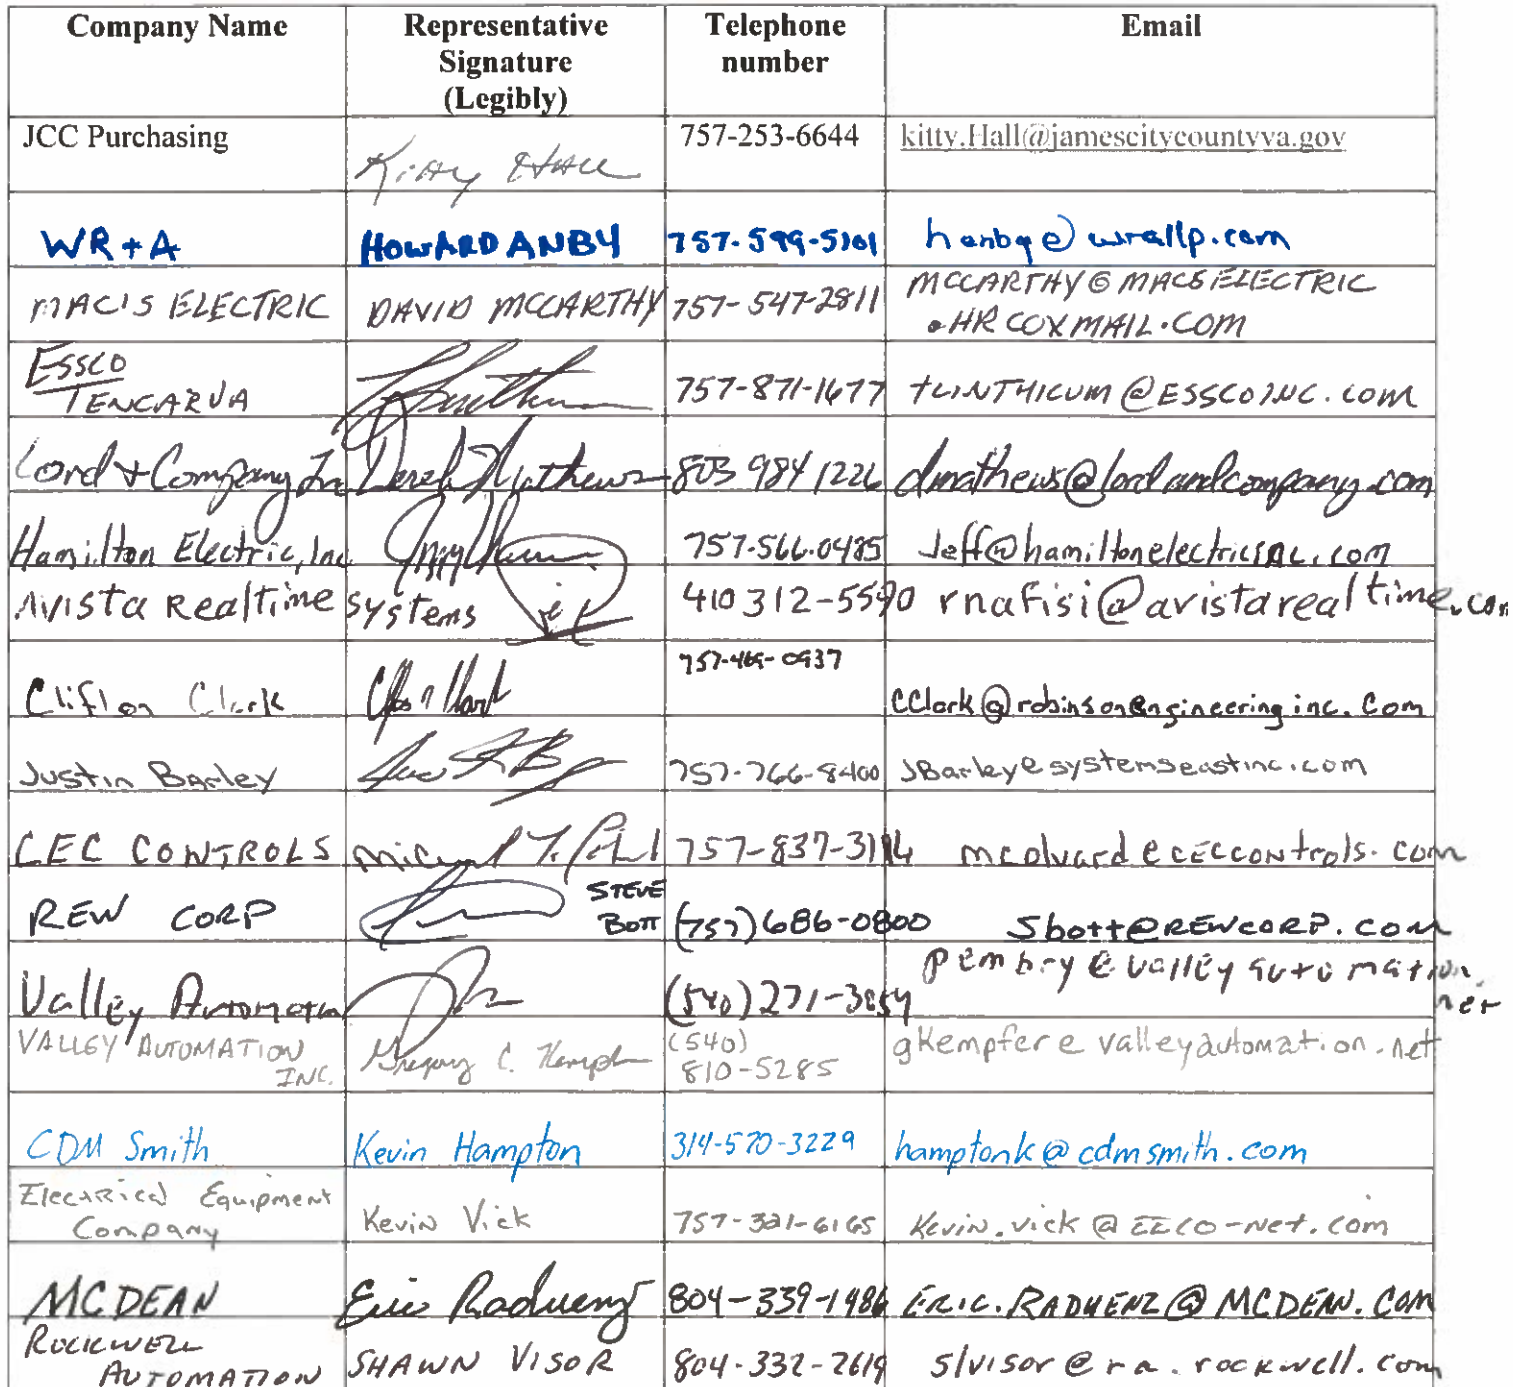 Company Name Representative Signature (Legibly) Telephone number Email
JCC Purchasing Kitty Hall 757-253-6644 kitty.Hall@jamescitycountyva.gov
WR+A HOWARD ANBY 757-599-5101 hanby@wrallp.com
MAC'S ELECTRIC DAVID MCCARTHY 757-547-2811 MCCARTHY@MACSELECTRIC
.HRCOXMAIL.COM
ESSCO
TENCARVA 757-871-1677 TLINTHICUM@ESSCOINC.COM
Lord + Company, Inc Derek Mathews 803 984 1226 dmathews@lordandcompany.com
Hamilton Electric, Inc 757-566-0485 Jeff@hamiltonelectricinc.com
Avista Realtime Systems 410 312-5590 rnafisi@avistarealtime.com
Clifton Clark 757-469-0937 CClark@robinsonengineeringinc.com
Justin Barley 757-766-8400 JBarley@systemseastinc.com
CEC CONTROLS 757-837-3114 mcolvard@CECCONtrols.com
REW CORP STEVE BOTT (757) 686-0800 Sbott@REWCORP.com
Valley Automation (540) 271-3859 pembry@valleyautomation.net
VALLEY AUTOMATION INC. Gregory C. Kempfer (540) 810-5285 gkempfer@valleyautomation.net
CDM Smith Kevin Hampton 314-570-3229 hamptonk@cdmsmith.com
Electrical Equipment Company Kevin Vick 757-321-6165 Kevin.vick@EECO-net.com
MCDEAN Eric Raduenz 804-339-1486 ERIC.RADUENZ@MCDEAN.COM
ROCKWELL AUTOMATION SHAWN VISOR 804-332-2619 slvisor@ra.rockwell.com